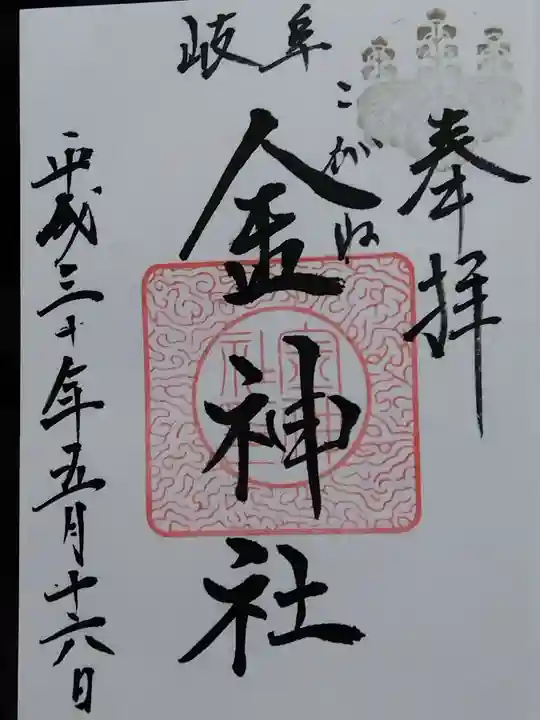 奉拝
岐阜
こがね
金神社
平成三十年五月十六日